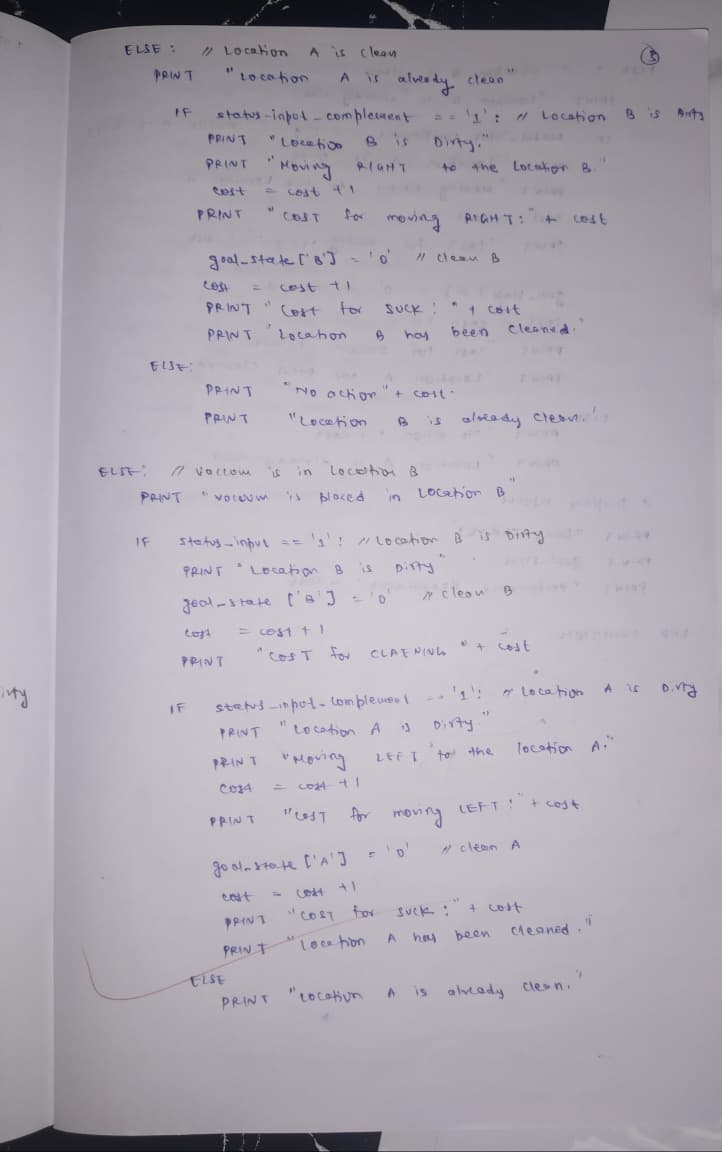 3
ELSE : // Location A is clean
PRINT "Location A is already clean"
IF status-input-complement == '1': // Location B is Dirty
PRINT "Location B is Dirty."
PRINT "Moving RIGHT to the Location B."
cost = cost +1
PRINT "COST for moving RIGHT:" + cost
goal-state ['B'] = '0' // clean B
cost = cost +1
PRINT "Cost for SUCK : " + cost
PRINT "Location B has been cleaned."
ELSE:
PRINT "No action" + cost.
PRINT "Location B is already clean."
ELSE: // vaccum is in location B
PRINT "vacuum is placed in Location B"
IF status-input == '1': // Location B is Dirty
PRINT "Location B is Dirty"
goal-state ['B'] = '0' // clean B
cost = cost + 1
PRINT "COST for CLAENING " + cost
IF status-input-complement == '1': // Location A is Dirty
PRINT "Location A is Dirty."
PRINT "Moving LEFT to the location A."
cost = cost +1
PRINT "COST for moving LEFT:" + cost
goal-state ['A'] = '0' // clean A
cost = cost +1
PRINT "COST for suck :" + cost
PRINT "Location A has been cleaned."
ELSE
PRINT "Location A is already clean."
irty